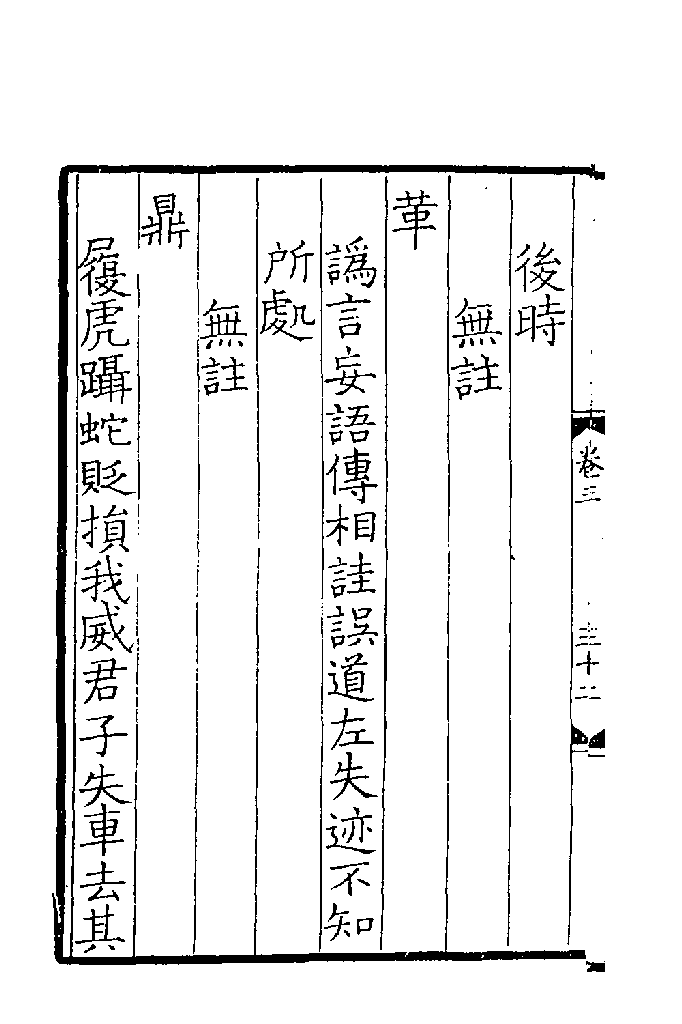 後時
無註
革
譌言妄語傳相詿誤道左失迹不知
所處
無註
鼎
履虎躡蛇貶損我威君子失車去其
卷三
三十二